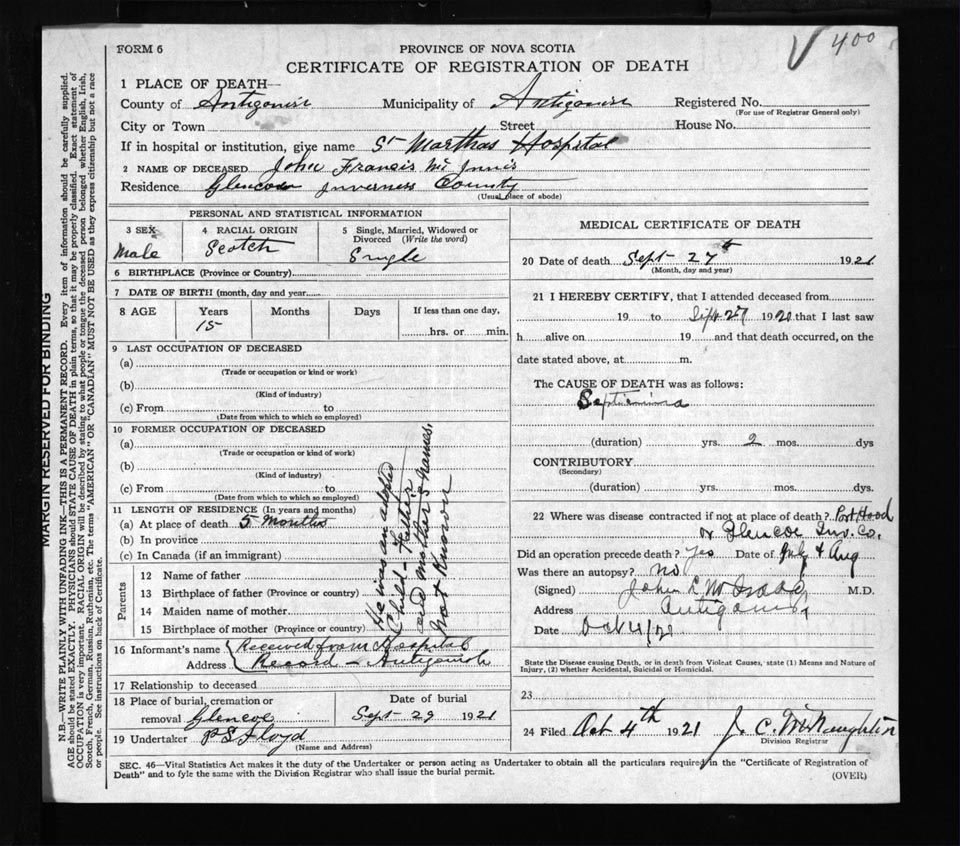 FORM 6
PROVINCE OF NOVA SCOTIA
400
CERTIFICATE OF REGISTRATION OF DEATH
1 PLACE OF DEATH—
County of Antigonish Municipality of Antigonish Registered No.
(For use of Registrar General only)
City or Town Street House No.
If in hospital or institution, give name St Marthas Hospital
2 NAME OF DECEASED John Francis Mc Innis
Residence Glencoe Inverness County
(Usual place of abode)
PERSONAL AND STATISTICAL INFORMATION
3 SEX
Male
4 RACIAL ORIGIN
Scotch
5 Single, Married, Widowed or Divorced (Write the word)
Single
6 BIRTHPLACE (Province or Country)
7 DATE OF BIRTH (month, day and year)
8 AGE Years Months Days If less than one day,
15 hrs. or min.
9 LAST OCCUPATION OF DECEASED
(a)
(Trade or occupation or kind or work)
(b)
(Kind of industry)
(c) From to
(Date from which to which so employed)
10 FORMER OCCUPATION OF DECEASED
(a)
(Trade or occupation or kind of work)
(b)
(Kind of industry)
(c) From to
(Date from which to which so employed)
11 LENGTH OF RESIDENCE (In years and months)
(a) At place of death 5 Months
(b) In province
(c) In Canada (if an immigrant)
Parents
12 Name of father
13 Birthplace of father (Province or country)
14 Maiden name of mother
15 Birthplace of mother (Province or country)
He was an adopted
Child – Father's
and mother's names
not Known
16 Informant's name Received from Hospital
Address Record – Antigonish
17 Relationship to deceased
18 Place of burial, cremation or Date of burial
removal Glencoe Sept 29 1921
19 Undertaker P S Floyd
(Name and Address)
MEDICAL CERTIFICATE OF DEATH
20 Date of death Sept 27th 1921
(Month, day and year)
21 I HEREBY CERTIFY, that I attended deceased from
19 to Sept 27 1920 that I last saw
h alive on 19 and that death occurred, on the
date stated above, at m.
The CAUSE OF DEATH was as follows:
Septicemia
(duration) yrs. 2 mos. dys
CONTRIBUTORY
(Secondary)
(duration) yrs. mos. dys
22 Where was disease contracted if not at place of death? Port Hood
or Glencoe Inv. Co.
Did an operation precede death? Yes Date of July & Aug
Was there an autopsy? No
(Signed) John L McIsaac M.D.
Address Antigonish
Date Oct 4/21
State the Disease causing Death, or in death from Violent Causes, state (1) Means and Nature of
Injury, (2) whether Accidental, Suicidal or Homicidal.
23
24 Filed Oct 4th 1921 J. C. McNaughton
Division Registrar
SEC. 46—Vital Statistics Act makes it the duty of the Undertaker or person acting as Undertaker to obtain all the particulars required in the "Certificate of Registration of
Death" and to fyle the same with the Division Registrar who shall issue the burial permit.
(OVER)
MARGIN RESERVED FOR BINDING
N.B.—WRITE PLAINLY WITH UNFADING INK—THIS IS A PERMANENT RECORD. Every item of information should be carefully supplied.
AGE should be stated EXACTLY. PHYSICIANS should STATE CAUSE OF DEATH in plain terms, so that it may be properly classified. Exact statement of
OCCUPATION is very important. RACIAL ORIGIN will be described by stating to what people or tongue the deceased person belonged whether English, Irish,
Scotch, French, German, Russian, Ruthenian, etc. The terms "AMERICAN" OR "CANADIAN" MUST NOT BE USED as they express citizenship but not a race
or people. See instructions on back of Certificate.